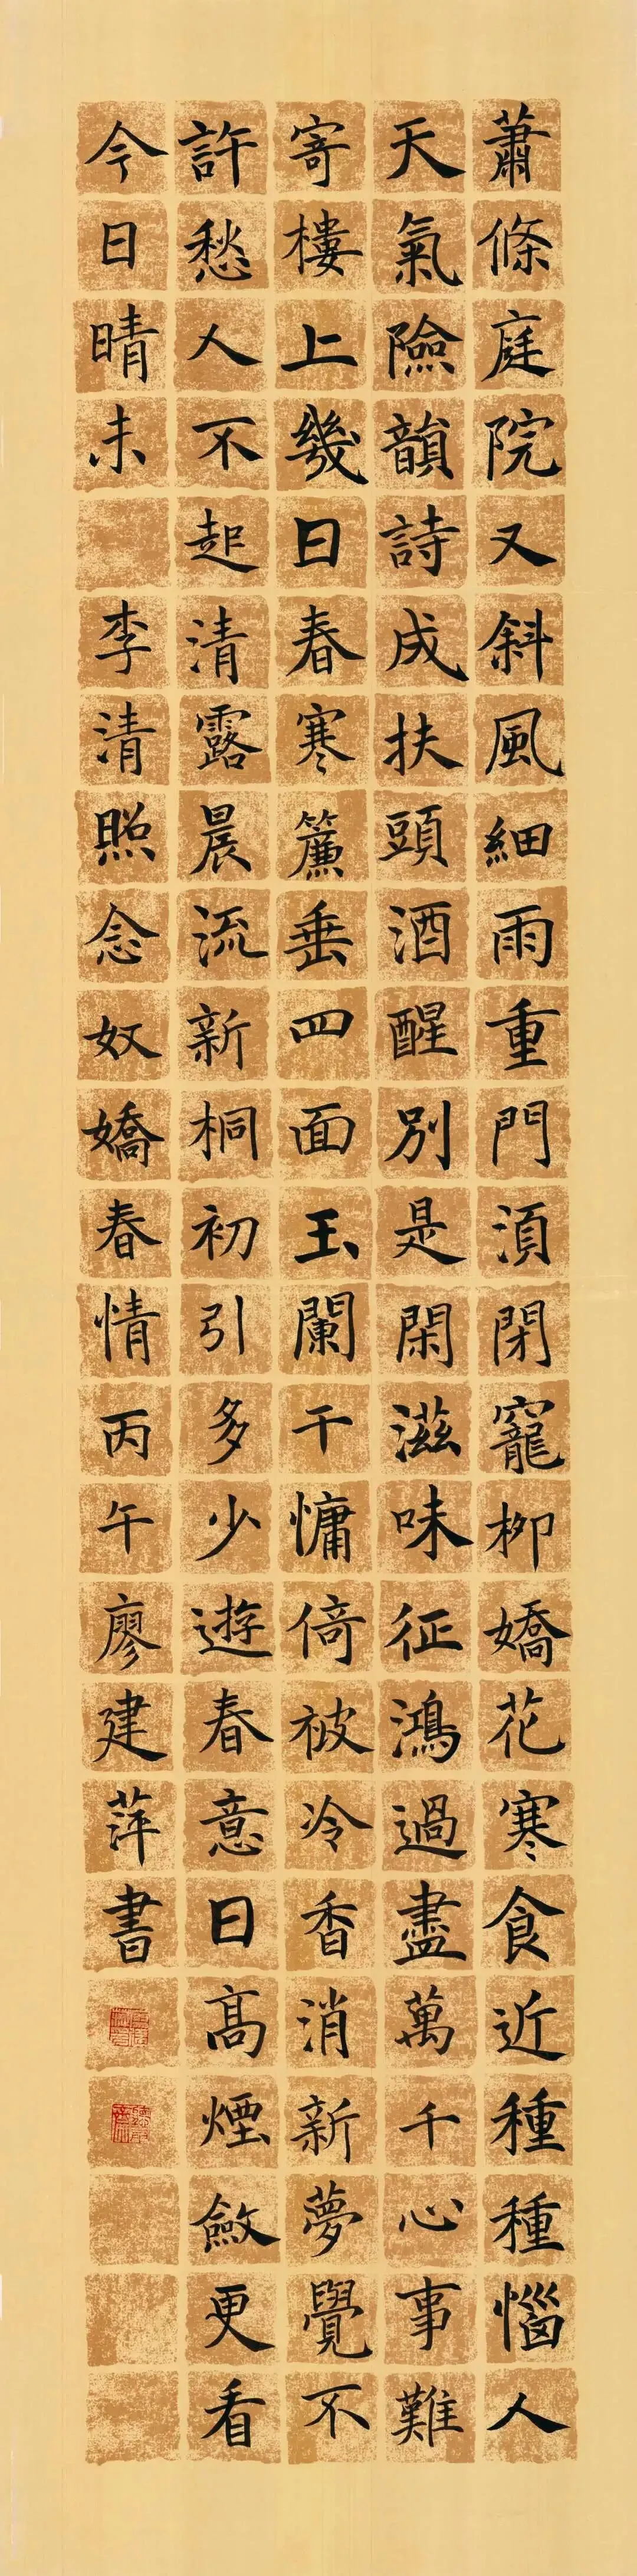 蕭條庭院又斜風細雨重門湏閉寵柳嬌花寒食近種種惱人
天氣險韻詩成扶頭酒醒別是閑滋味征鴻過盡萬千心事難
寄樓上幾日春寒簾垂四面玉闌干慵倚被冷香消新夢覺不
許愁人不起清露晨流新桐初引多少遊春意日高煙斂更看
今日晴未
李清照念奴嬌春情丙午廖建萍書